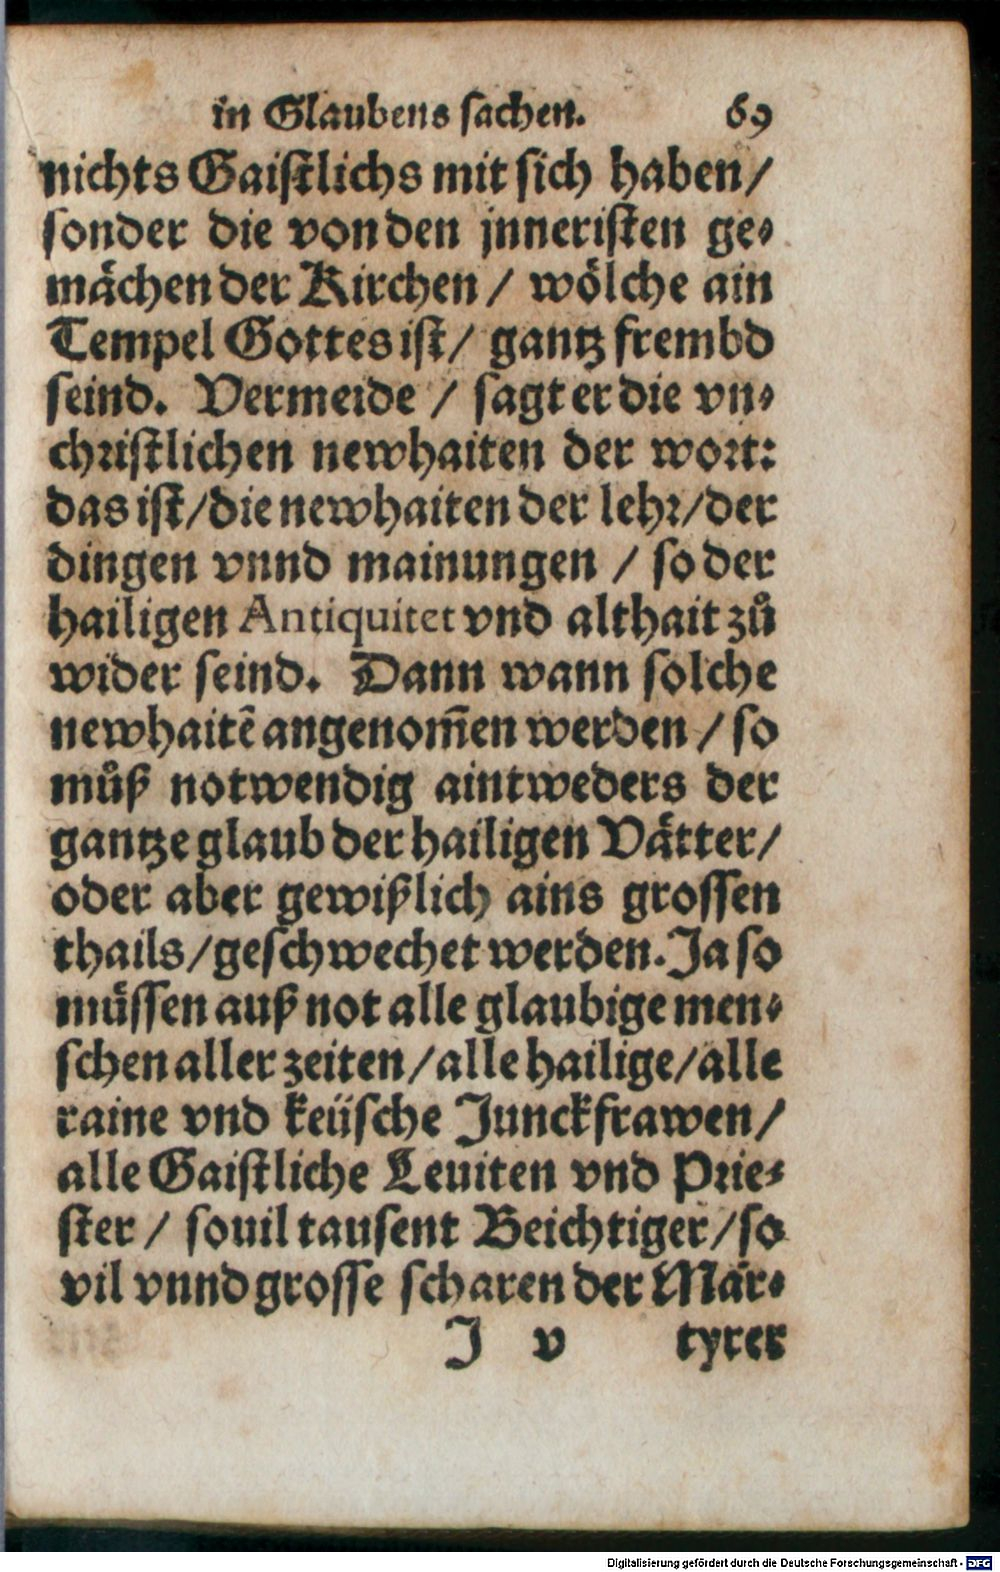 in Glaubens sachen. 69
nichts Gaistlichs mit sich haben /
sonder die von den jnneristen ge⸗
mächen der Kirchen / wölche ain
Tempel Gottes ist / gantz frembd
seind. Vermeide / sagt er die vn⸗
christlichen newhaiten der wort:
das ist / die newhaiten der lehr / der
dingen vnnd mainungen / so der
hailigen Antiquitet vnd althait zů
wider seind. Dann wann solche
newhaitē angenom̄en werden / so
můß notwendig aintweders der
gantze glaub der hailigen Vätter /
oder aber gewißlich ains grossen
thails / geschwechet werden. Ja so
müssen auß not alle glaubige men⸗
schen aller zeiten / alle hailige / alle
raine vnd keüsche Junckfrawen /
alle Gaistliche Leuiten vnd Prie⸗
ster / souil tausent Beichtiger / so
vil vnnd grosse scharen der Mär⸗
J v tyrer
Digitalisierung gefördert durch die Deutsche Forschungsgemeinschaft - DFG